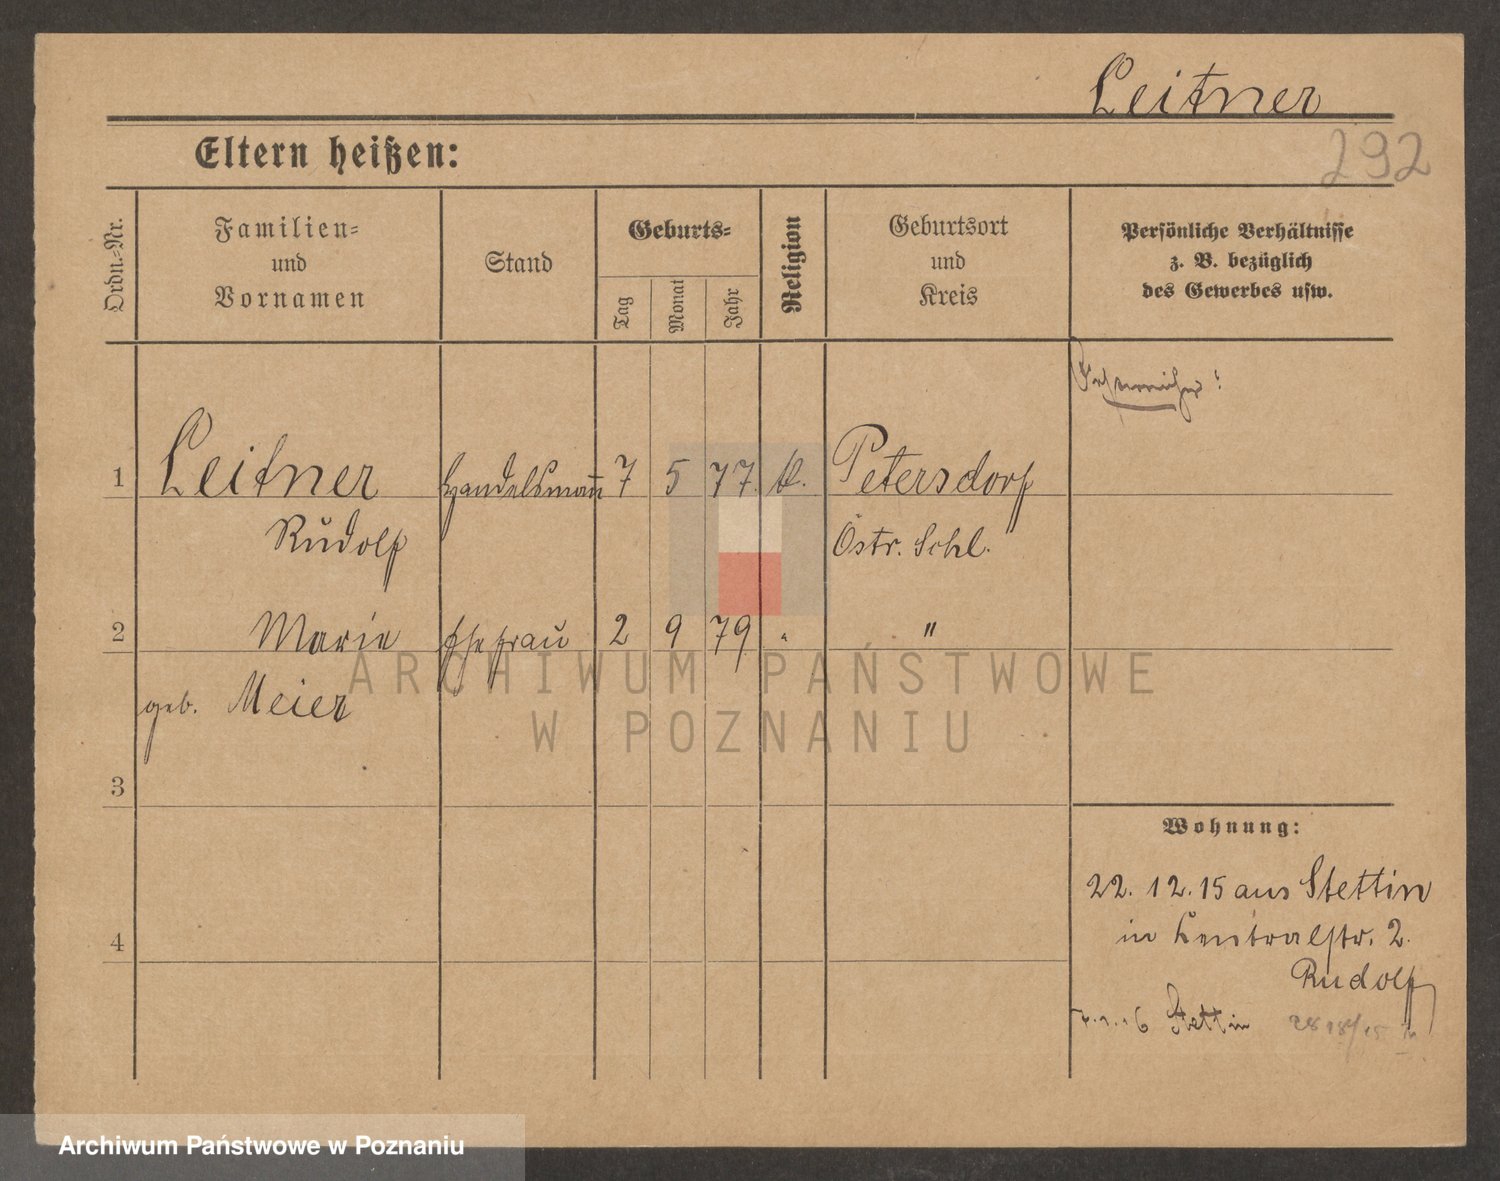 Leitner
292
Eltern heißen:
Ordn.-Nr.
Familien-
und
Vornamen
Stand
Geburts-
Tag
Monat
Jahr
Religion
Geburtsort
und
Kreis
Persönliche Verhältnisse
z. B. bezüglich
des Gewerbes usw.
1 Leitner Handelsmann 7 5 77. k. Petersdorf
Rudolf Östr. Schl.
2 Marie Ehefrau 2 9 79 " "
geb. Meier
3
Wohnung:
22. 12. 15 aus Stettin
4
in Centralstr. 2.
Rudolf
Stettin
ARCHIWUM PAŃSTWOWE
W POZNANIU
Archiwum Państwowe w Poznaniu